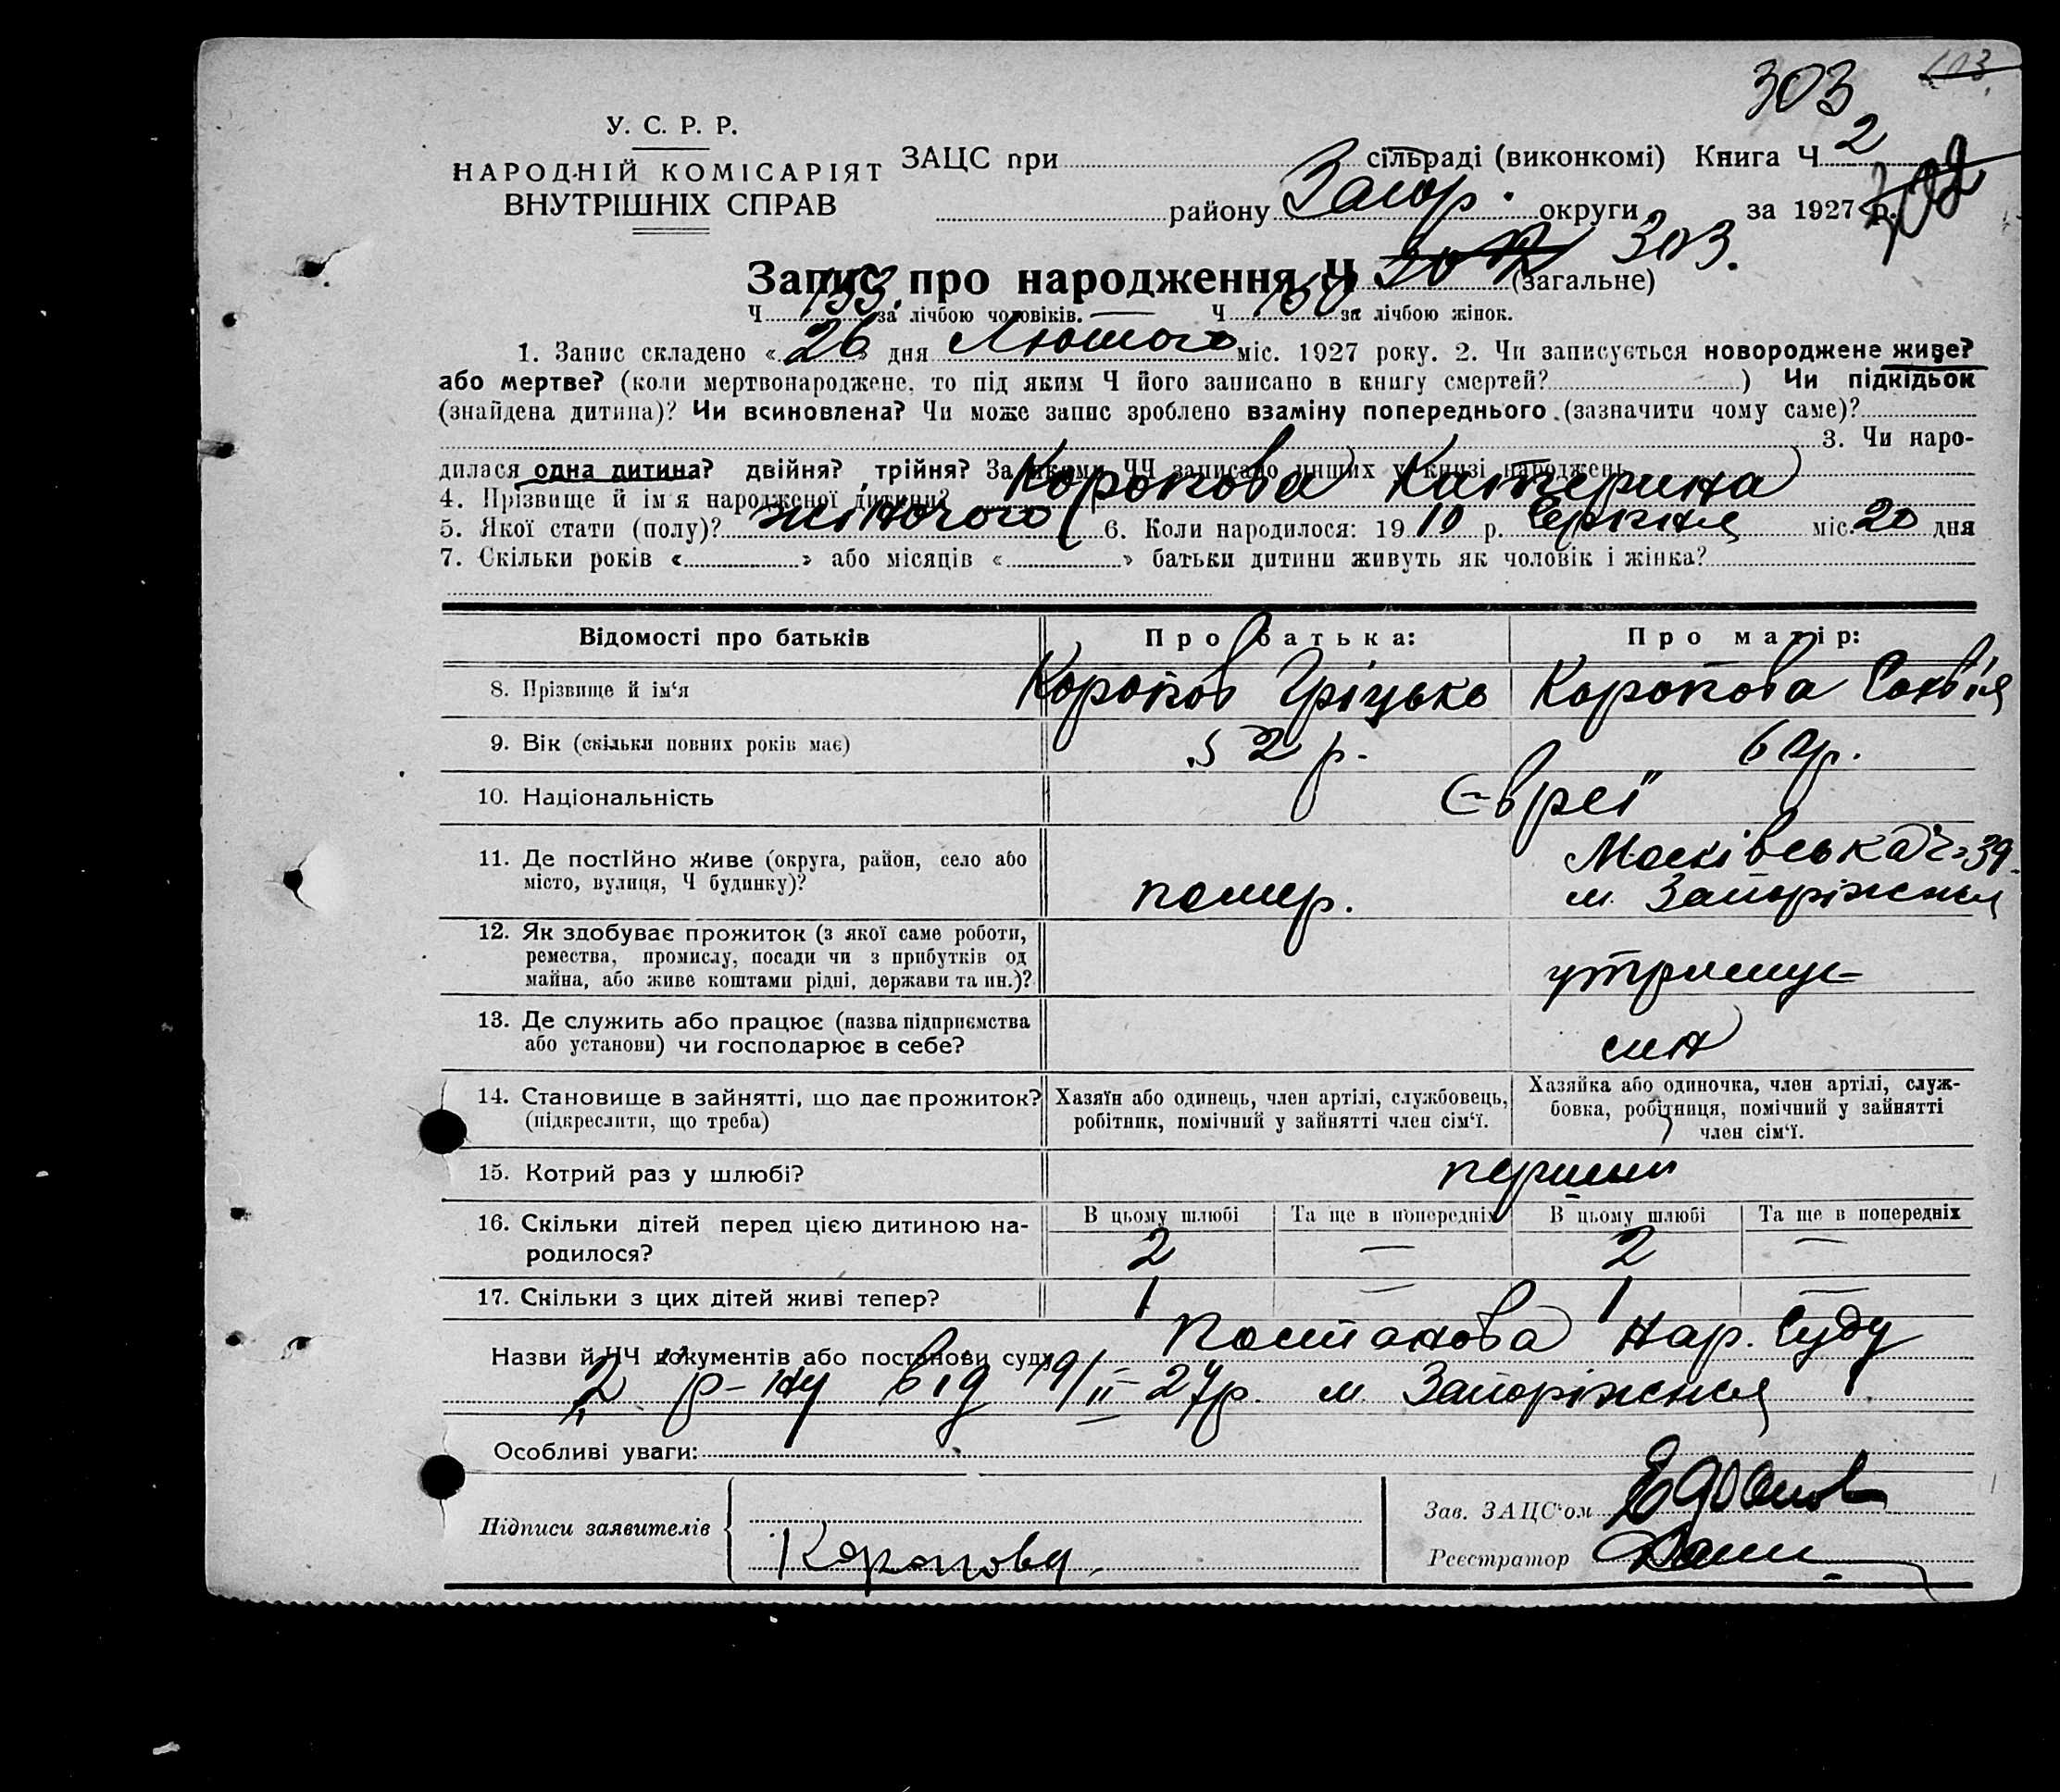 303
У. С. Р. Р.
НАРОДНІЙ КОМІСАРІЯТ
ВНУТРІШНІХ СПРАВ
ЗАЦС при сільраді (виконкомі) Книга Ч 2
району Запор. округи за 1927 р.
Запис про народження Ч 303. (загальне)
Ч 153 за лічбою чоловіків. — Ч 150 за лічбою жінок.
1. Запис складено «26» дня Лютого міс. 1927 року. 2. Чи записується новороджене живе?
або мертве? (коли мертвонароджене, то під яким Ч його записано в книгу смертей? ) Чи підкідьок
(знайдена дитина)? Чи всиновлена? Чи може запис зроблено взаміну попереднього (зазначити чому саме)?
3. Чи наро-
дилася одна дитина? двійня? трійня? За якими ЧЧ записано инших у книзі народжень
4. Прізвище й ім'я народженої дитини? Коропова Катерина
5. Якої стати (полу)? жіночого 6. Коли народилося: 1910 р. Серпня міс. 20 дня
7. Скільки років « » або місяців « » батьки дитини живуть як чоловік і жінка?
Відомості про батьків Про батька: Про матір:
8. Прізвище й ім'я Коропов Гріцько Коропова Софія
9. Вік (скільки повних років має) 52 р. 60 р.
10. Національність Євреї
11. Де постійно живе (округа, район, село або
місто, вулиця, Ч будинку)? помер. Московська ч 39
м. Запоріжжя
12. Як здобуває прожиток (з якої саме роботи,
ремества, промислу, посади чи з прибутків од
майна, або живе коштами рідні, держави та ин.)? утримує
13. Де служить або працює (назва підприємства
або установи) чи господарює в себе? син
14. Становище в зайнятті, що дає прожиток?
(підкреслити, що треба)
Хазяїн або одинець, член артілі, службовець,
робітник, помічний у зайнятті член сім'ї.
Хазяйка або одиночка, член артілі, служ-
бовка, робітниця, помічний у зайнятті
член сім'ї.
15. Котрий раз у шлюбі? перший
16. Скільки дітей перед цією дитиною на-
родилося?
В цьому шлюбі Та ще в попередніх В цьому шлюбі Та ще в попередніх
2 — 2 —
17. Скільки з цих дітей живі тепер? 1 — 1 —
Назви й ЧЧ документів або постанови суду Постанова Нар. Суду
2 р-ну від 19/II-27р. м. Запоріжжя
Особливі уваги:
Підписи заявителів
Коропову
Зав. ЗАЦС'ом
Реєстратор